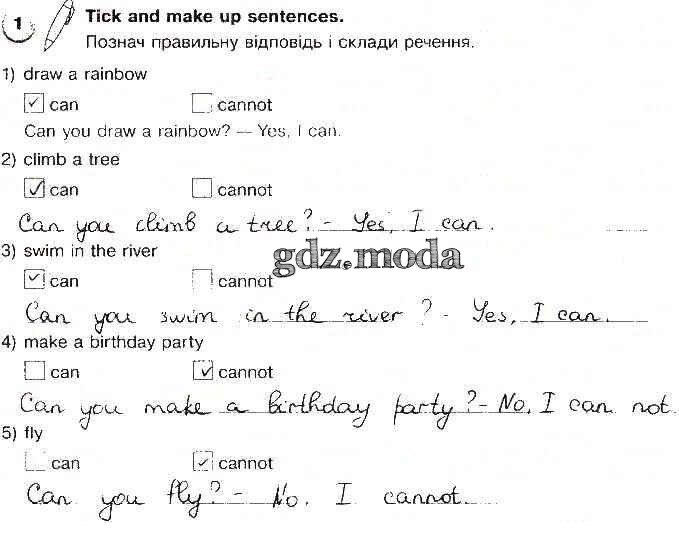 1 Tick and make up sentences.
Познач правильну відповідь і склади речення.
1) draw a rainbow
can cannot
Can you draw a rainbow? — Yes, I can.
2) climb a tree
can cannot
Can you climb a tree? - Yes, I can.
3) swim in the river
gdz.moda
can cannot
Can you swim in the river? - Yes, I can.
4) make a birthday party
can cannot
Can you make a birthday party? - No, I can not.
5) fly
can cannot
Can you fly? - No. I cannot.